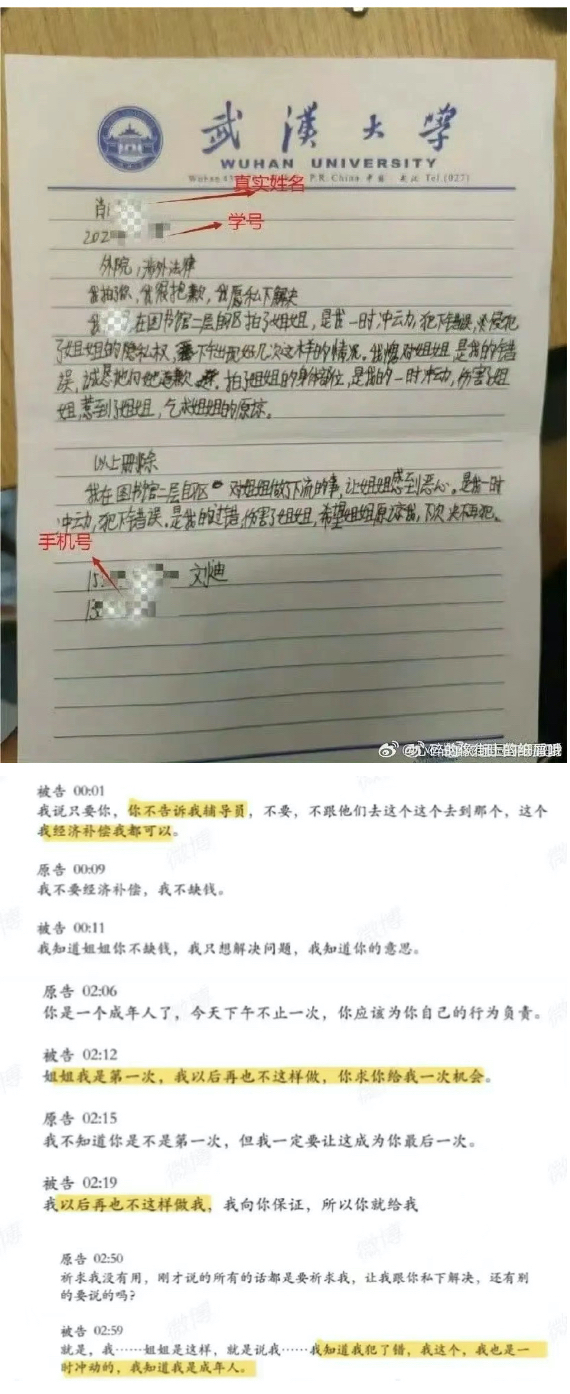 武漢大學
WUHAN UNIVERSITY
P.R. China 中国 武汉 Tel.(027)
真实姓名
肖
学号
202
外院,涉外法律
我拍了你,我很抱歉,我愿私下解决
我 在图书馆二层自习区拍了姐姐,是我一时冲动,犯下错误,侵犯
了姐姐的隐私权,
误,诚恳地向她道歉 拍了姐姐的身体部位,是我的一时冲动,伤害了姐
姐,惹到了姐姐,乞求姐姐的原谅。
以上删除
我在图书馆二层自习区 对姐姐做了下流的事,让姐姐感到恶心。是我一时
冲动,犯下错误。是我的过错,伤害了姐姐,希望姐姐原谅我,下次决不再犯。
手机号
15
13
被告 00:01
我说只要你,你不告诉我辅导员,不要,不跟他们去这个这个去到那个,这个
我经济补偿我都可以。
原告 00:09
我不要经济补偿,我不缺钱。
被告 00:11
我知道姐姐你不缺钱,我只想解决问题,我知道你的意思。
原告 02:06
你是一个成年人了,今天下午不止一次,你应该为你自己的行为负责。
被告 02:12
姐姐我是第一次,我以后再也不这样做,你求你给我一次机会。
原告 02:15
我不知道你是不是第一次,但我一定要让这成为你最后一次。
被告 02:19
我以后再也不这样做我,我向你保证,所以你就给我
原告 02:50
祈求我没有用,刚才说的所有的话都是要祈求我,让我跟你私下解决,还有别
的要说的吗?
被告 02:59
就是,我……姐姐是这样,就是说我……我知道我犯了错,我这个,我也是一
时冲动的,我知道我是成年人。